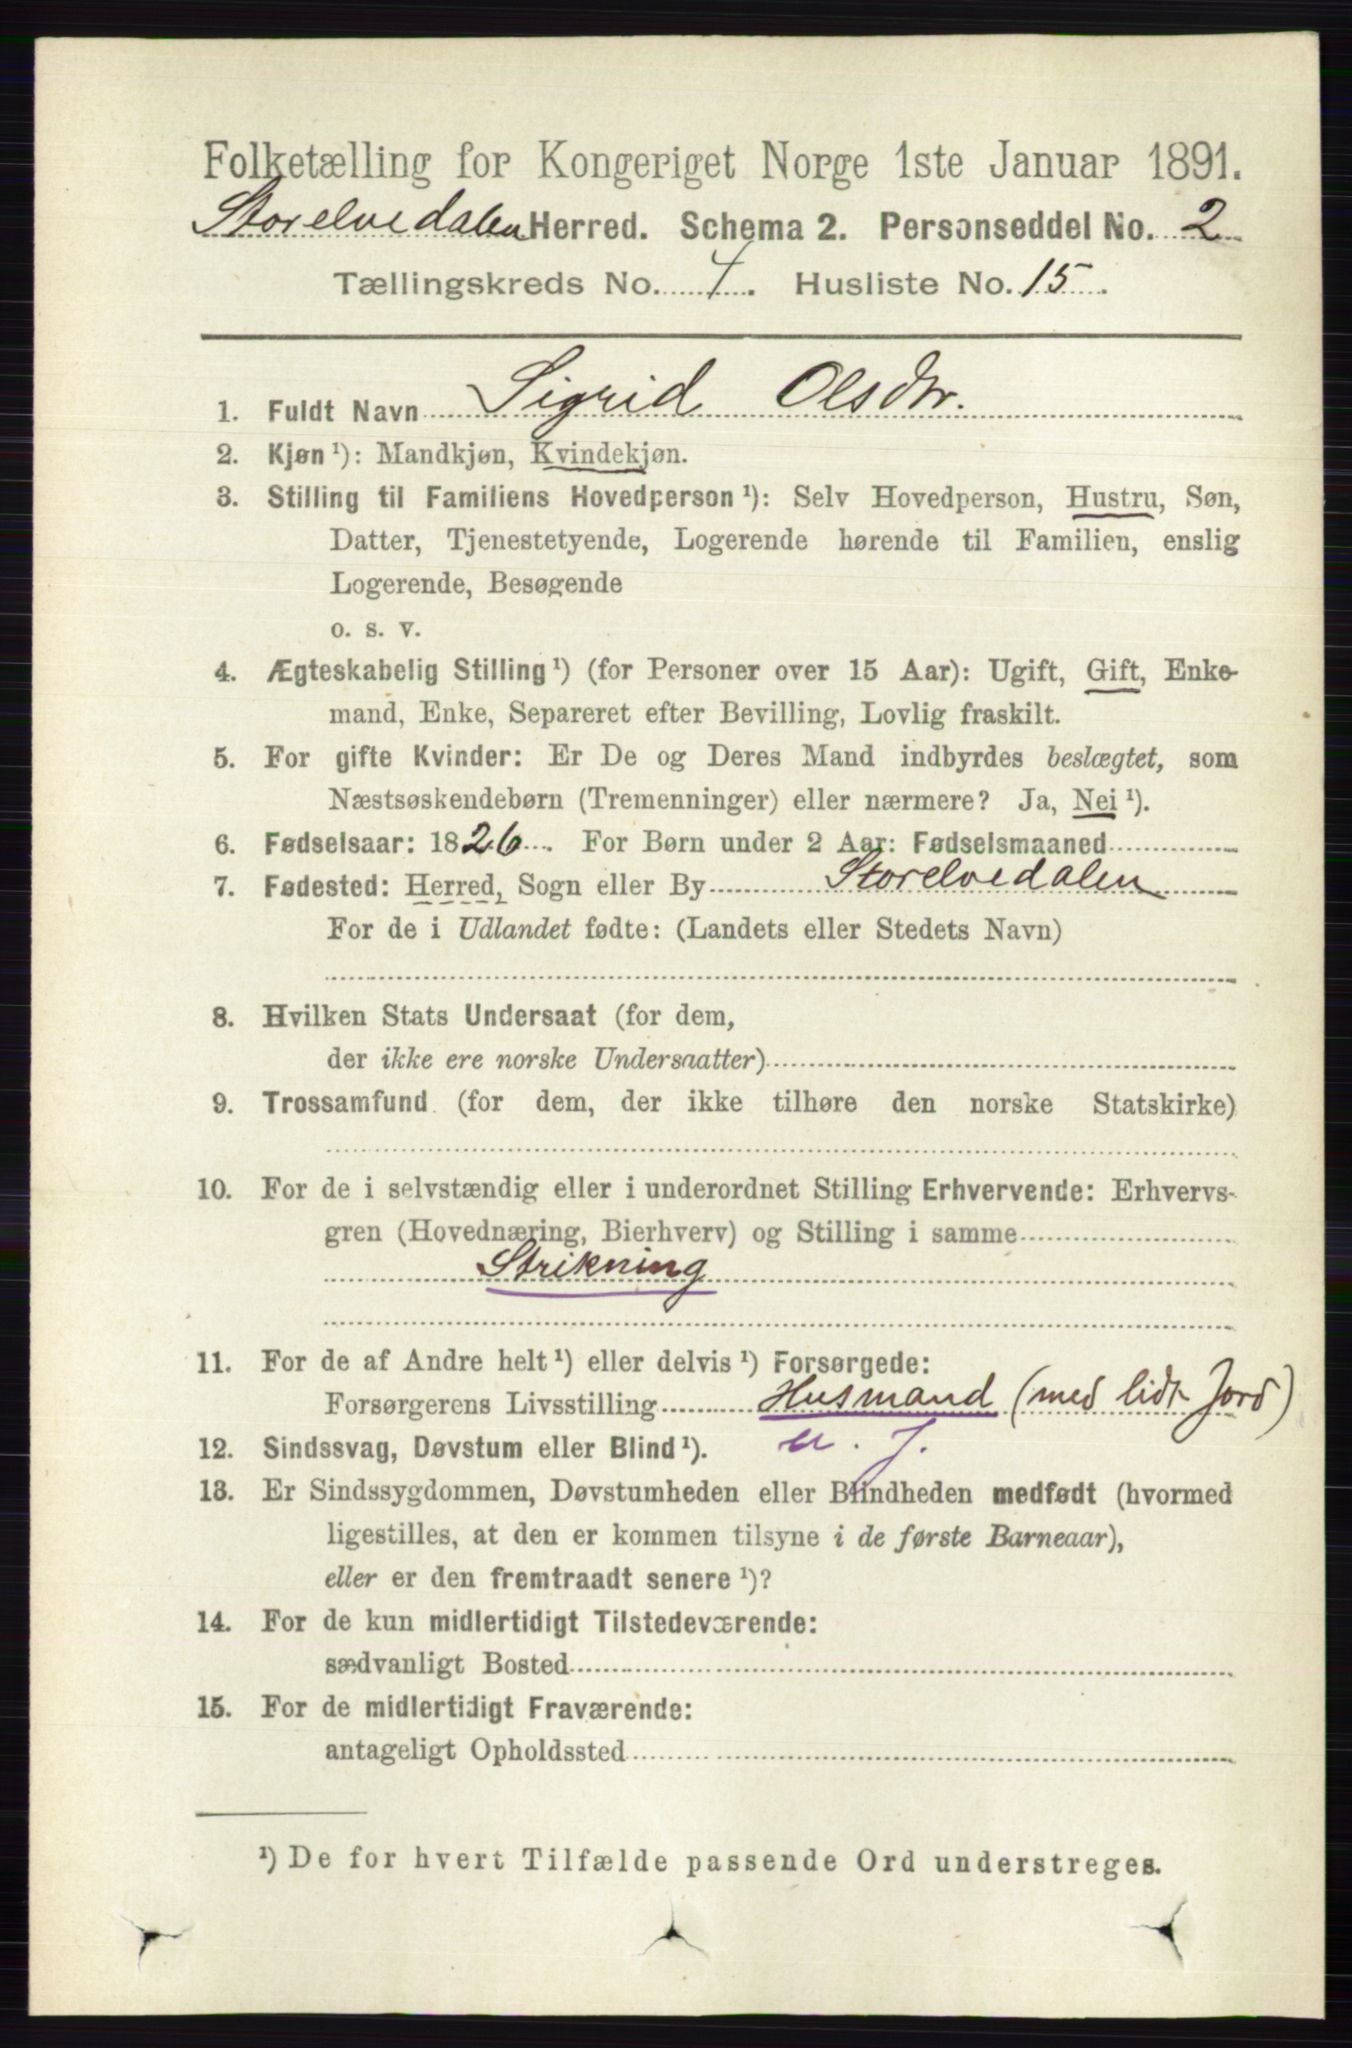 Folketælling for Kongeriget Norge 1ste Januar 1891.
Storelvedalen Herred. Schema 2. Personseddel No. 2
Tællingskreds No. 4. Husliste No. 15.
1. Fuldt Navn Sigrid Olsdtr.
2. Kjøn ¹): Mandkjøn, Kvindekjøn.
3. Stilling til Familiens Hovedperson ¹): Selv Hovedperson, Hustru, Søn,
Datter, Tjenestetyende, Logerende hørende til Familien, enslig
Logerende, Besøgende
o. s. v.
4. Ægteskabelig Stilling ¹) (for Personer over 15 Aar): Ugift, Gift, Enke-
mand, Enke, Separeret efter Bevilling, Lovlig fraskilt.
5. For gifte Kvinder: Er De og Deres Mand indbyrdes beslægtet, som
Næstsøskendebørn (Tremenninger) eller nærmere? Ja, Nei ¹).
6. Fødselsaar: 1826. For Børn under 2 Aar: Fødselsmaaned
7. Fødested: Herred, Sogn eller By Storelvedalen
For de i Udlandet fødte: (Landets eller Stedets Navn)
8. Hvilken Stats Undersaat (for dem,
der ikke ere norske Undersaatter)
9. Trossamfund (for dem, der ikke tilhøre den norske Statskirke)
10. For de i selvstændig eller i underordnet Stilling Erhvervende: Erhvervs-
gren (Hovednæring, Bierhverv) og Stilling i samme
Strikning
11. For de af Andre helt ¹) eller delvis ¹) Forsørgede:
Forsørgerens Livsstilling Husmand (med lidt Jord)
12. Sindssvag, Døvstum eller Blind ¹). u. J.
13. Er Sindssygdommen, Døvstumheden eller Blindheden medfødt (hvormed
ligestilles, at den er kommen tilsyne i de første Barneaar),
eller er den fremtraadt senere ¹)?
14. For de kun midlertidigt Tilstedeværende:
sædvanligt Bosted
15. For de midlertidigt Fraværende:
antageligt Opholdssted
¹) De for hvert Tilfælde passende Ord understreges.